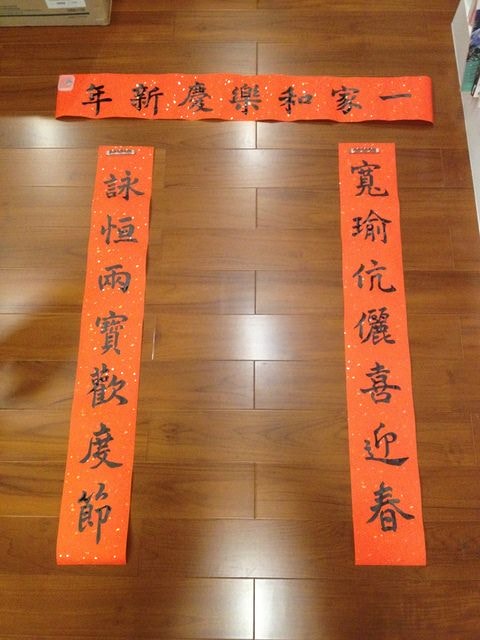 一家和樂慶新年
寬瑜伉儷喜迎春
詠恒兩寶歡度節